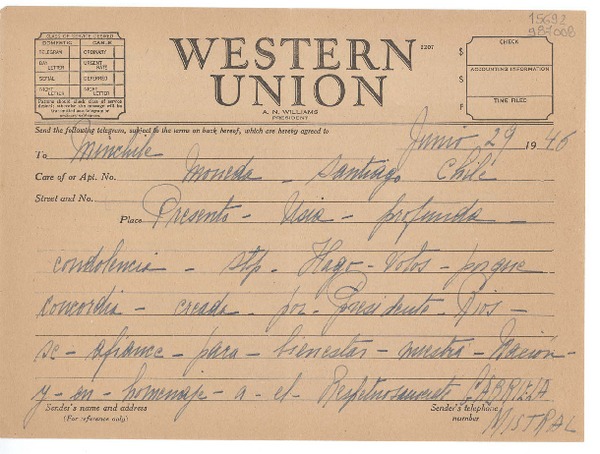 15692
987008
CLASS OF SERVICE DESIRED
DOMESTIC CABLE
TELEGRAM ORDINARY
DAY LETTER URGENT RATE
SERIAL DEFERRED
NIGHT LETTER NIGHT LETTER
Patrons should check class of service desired; otherwise the message will be transmitted as a telegram or ordinary cablegram.
WESTERN UNION
1207
A. N. WILLIAMS
PRESIDENT
$
$
$
CHECK
ACCOUNTING INFORMATION
TIME FILED
Send the following telegram, subject to the terms on back hereof, which are hereby agreed to
Junio, 29 1946
To Minchile
Care of or Apt. No. Moneda - Santiago Chile
Street and No.
Place Presento - Usia - profunda -
condolencia - stp. Hago - Votos - porque
concordia - creada - por - Presidente - Rios -
se - afiance - para - bienestar - nuestra - Nación -
y - en - homenaje - a - el - Respetuosamente GABRIELA
MISTRAL
Sender's name and address
(For reference only)
Sender's telephone number